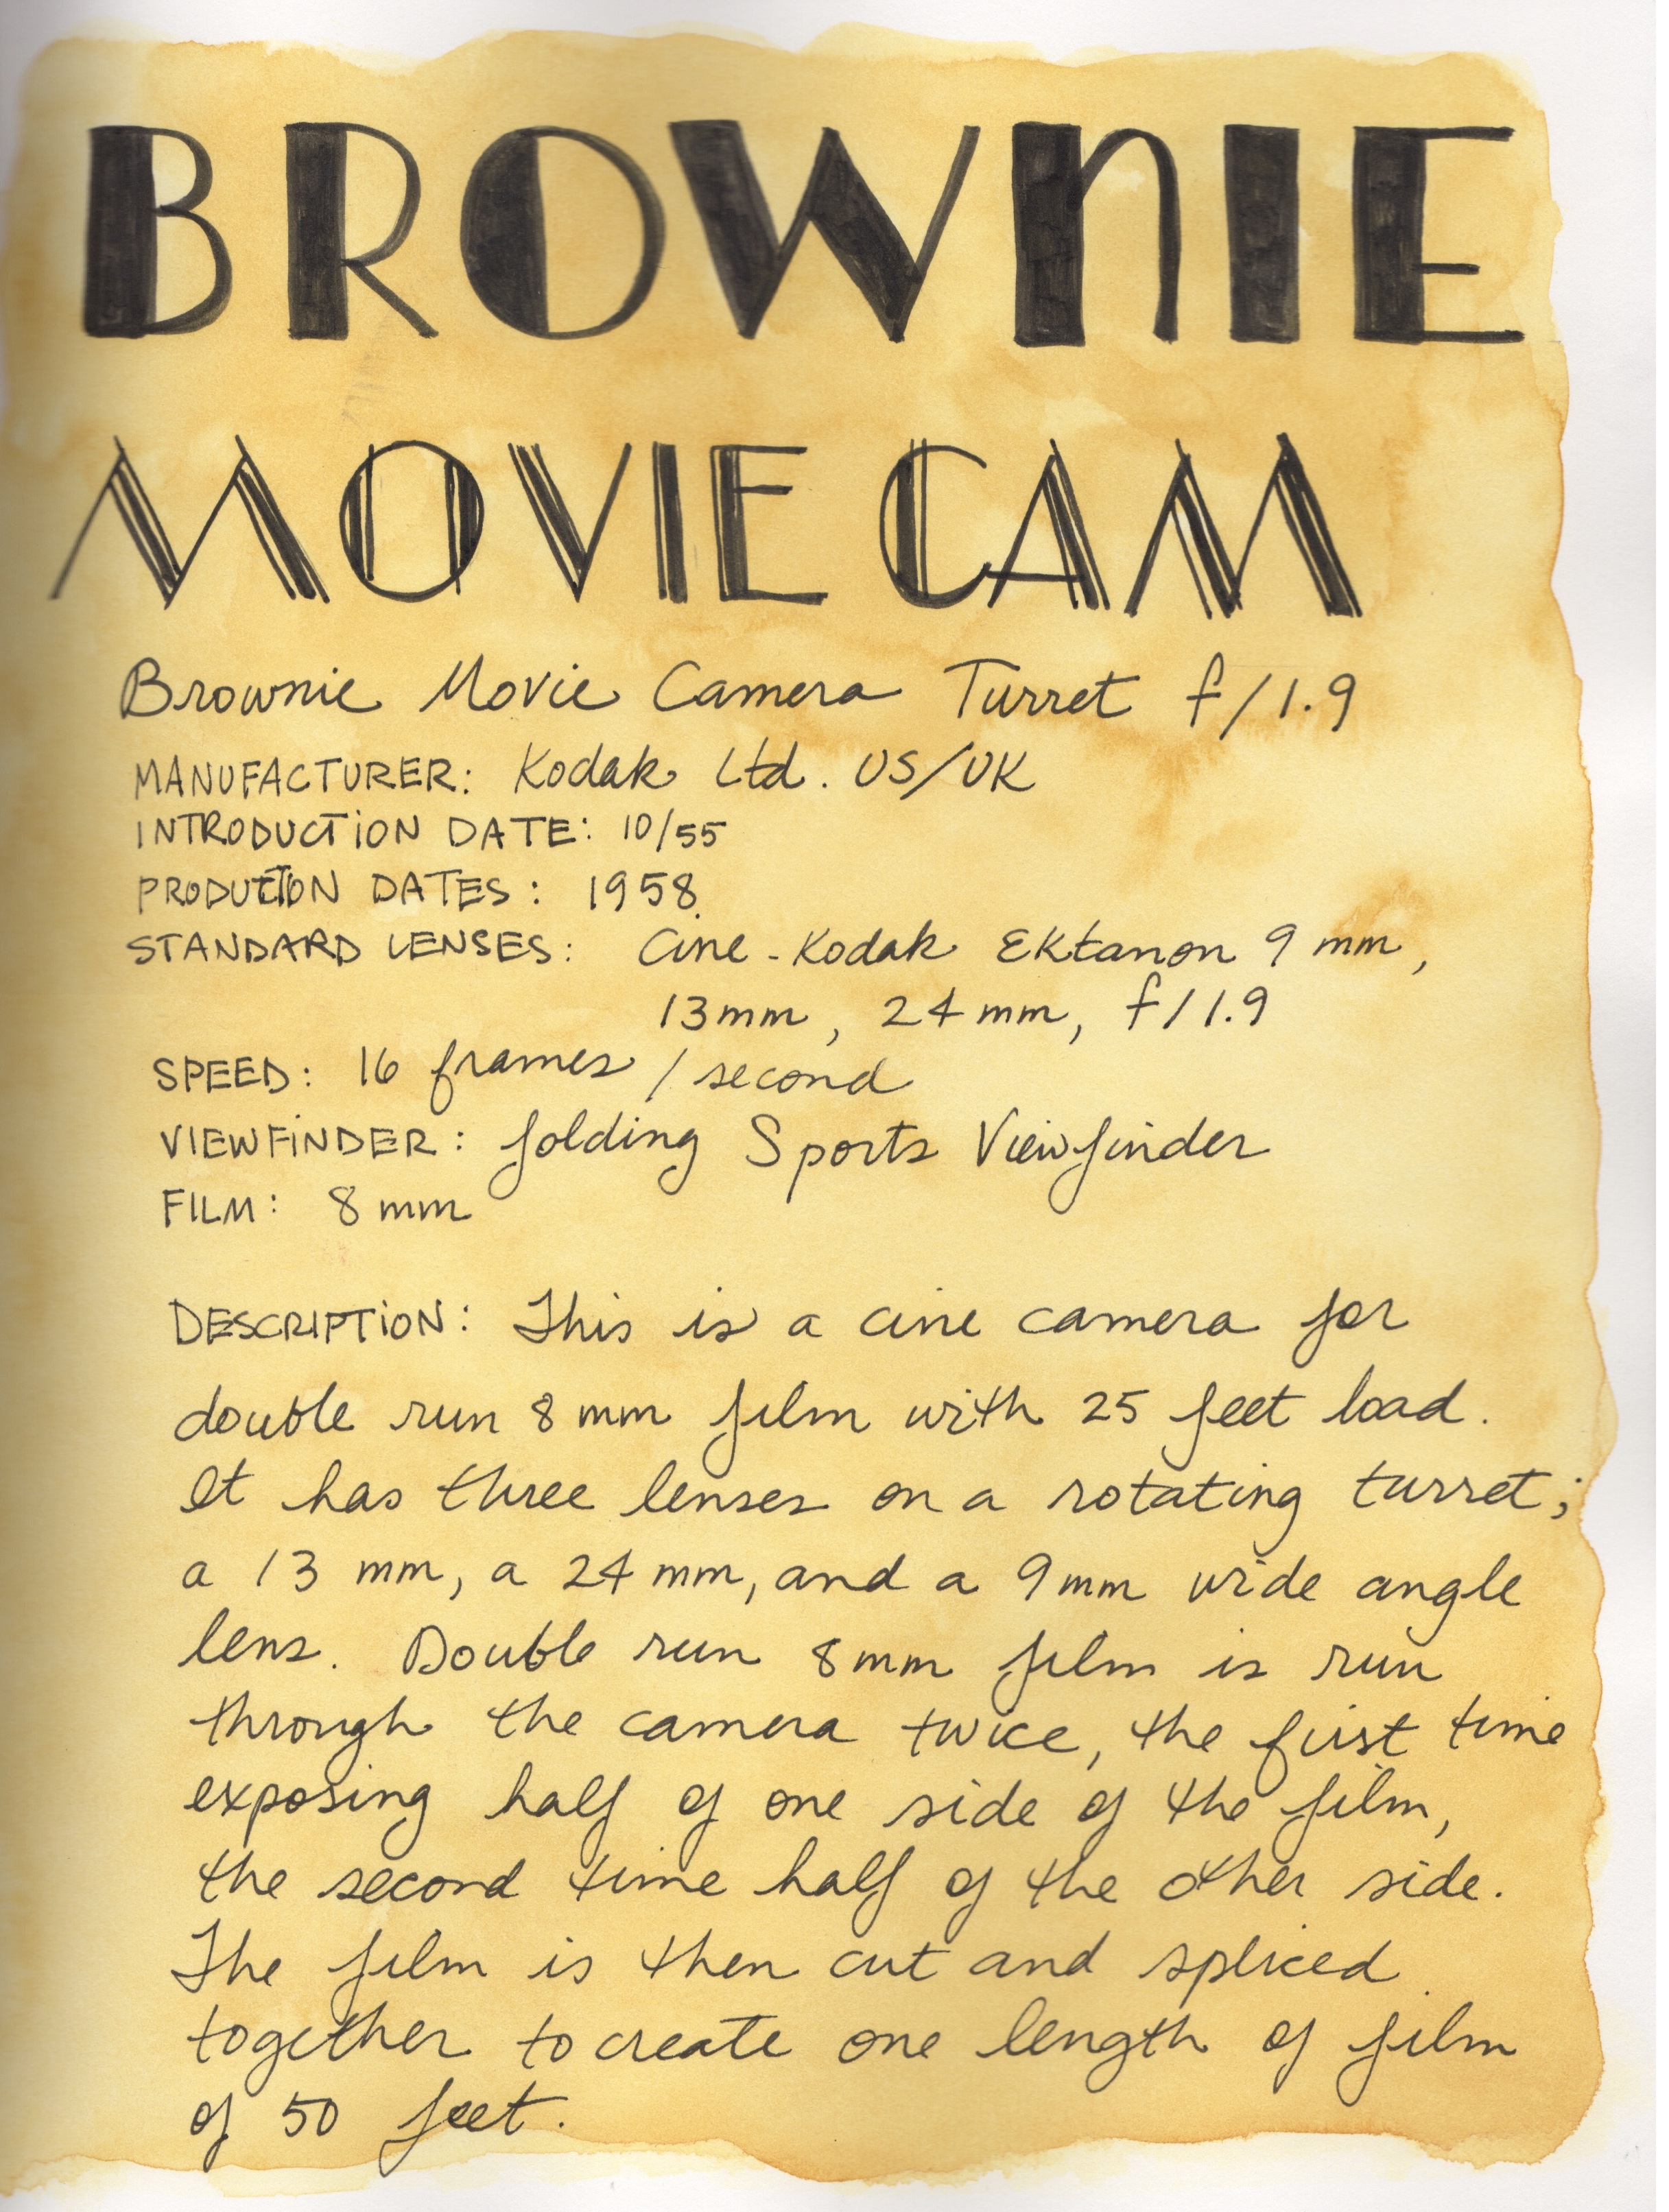 BROWNIE
MOVIE CAM
Brownie Movie Camera Turret f/1.9
MANUFACTURER: Kodak Ltd. US/UK
INTRODUCTION DATE: 10/55
PRODUCTION DATES: 1958
STANDARD LENSES: Cine-Kodak Ektanon 9 mm,
13mm, 24mm, f/1.9
SPEED: 16 frames / second
VIEWFINDER: folding Sports Viewfinder
FILM: 8mm
DESCRIPTION: This is a cine camera for
double run 8mm film with 25 feet load.
It has three lenses on a rotating turret;
a 13 mm, a 24 mm, and a 9mm wide angle
lens. Double run 8mm film is run
through the camera twice, the first time
exposing half of one side of the film,
the second time half of the other side.
The film is then cut and spliced
together to create one length of film
of 50 feet.